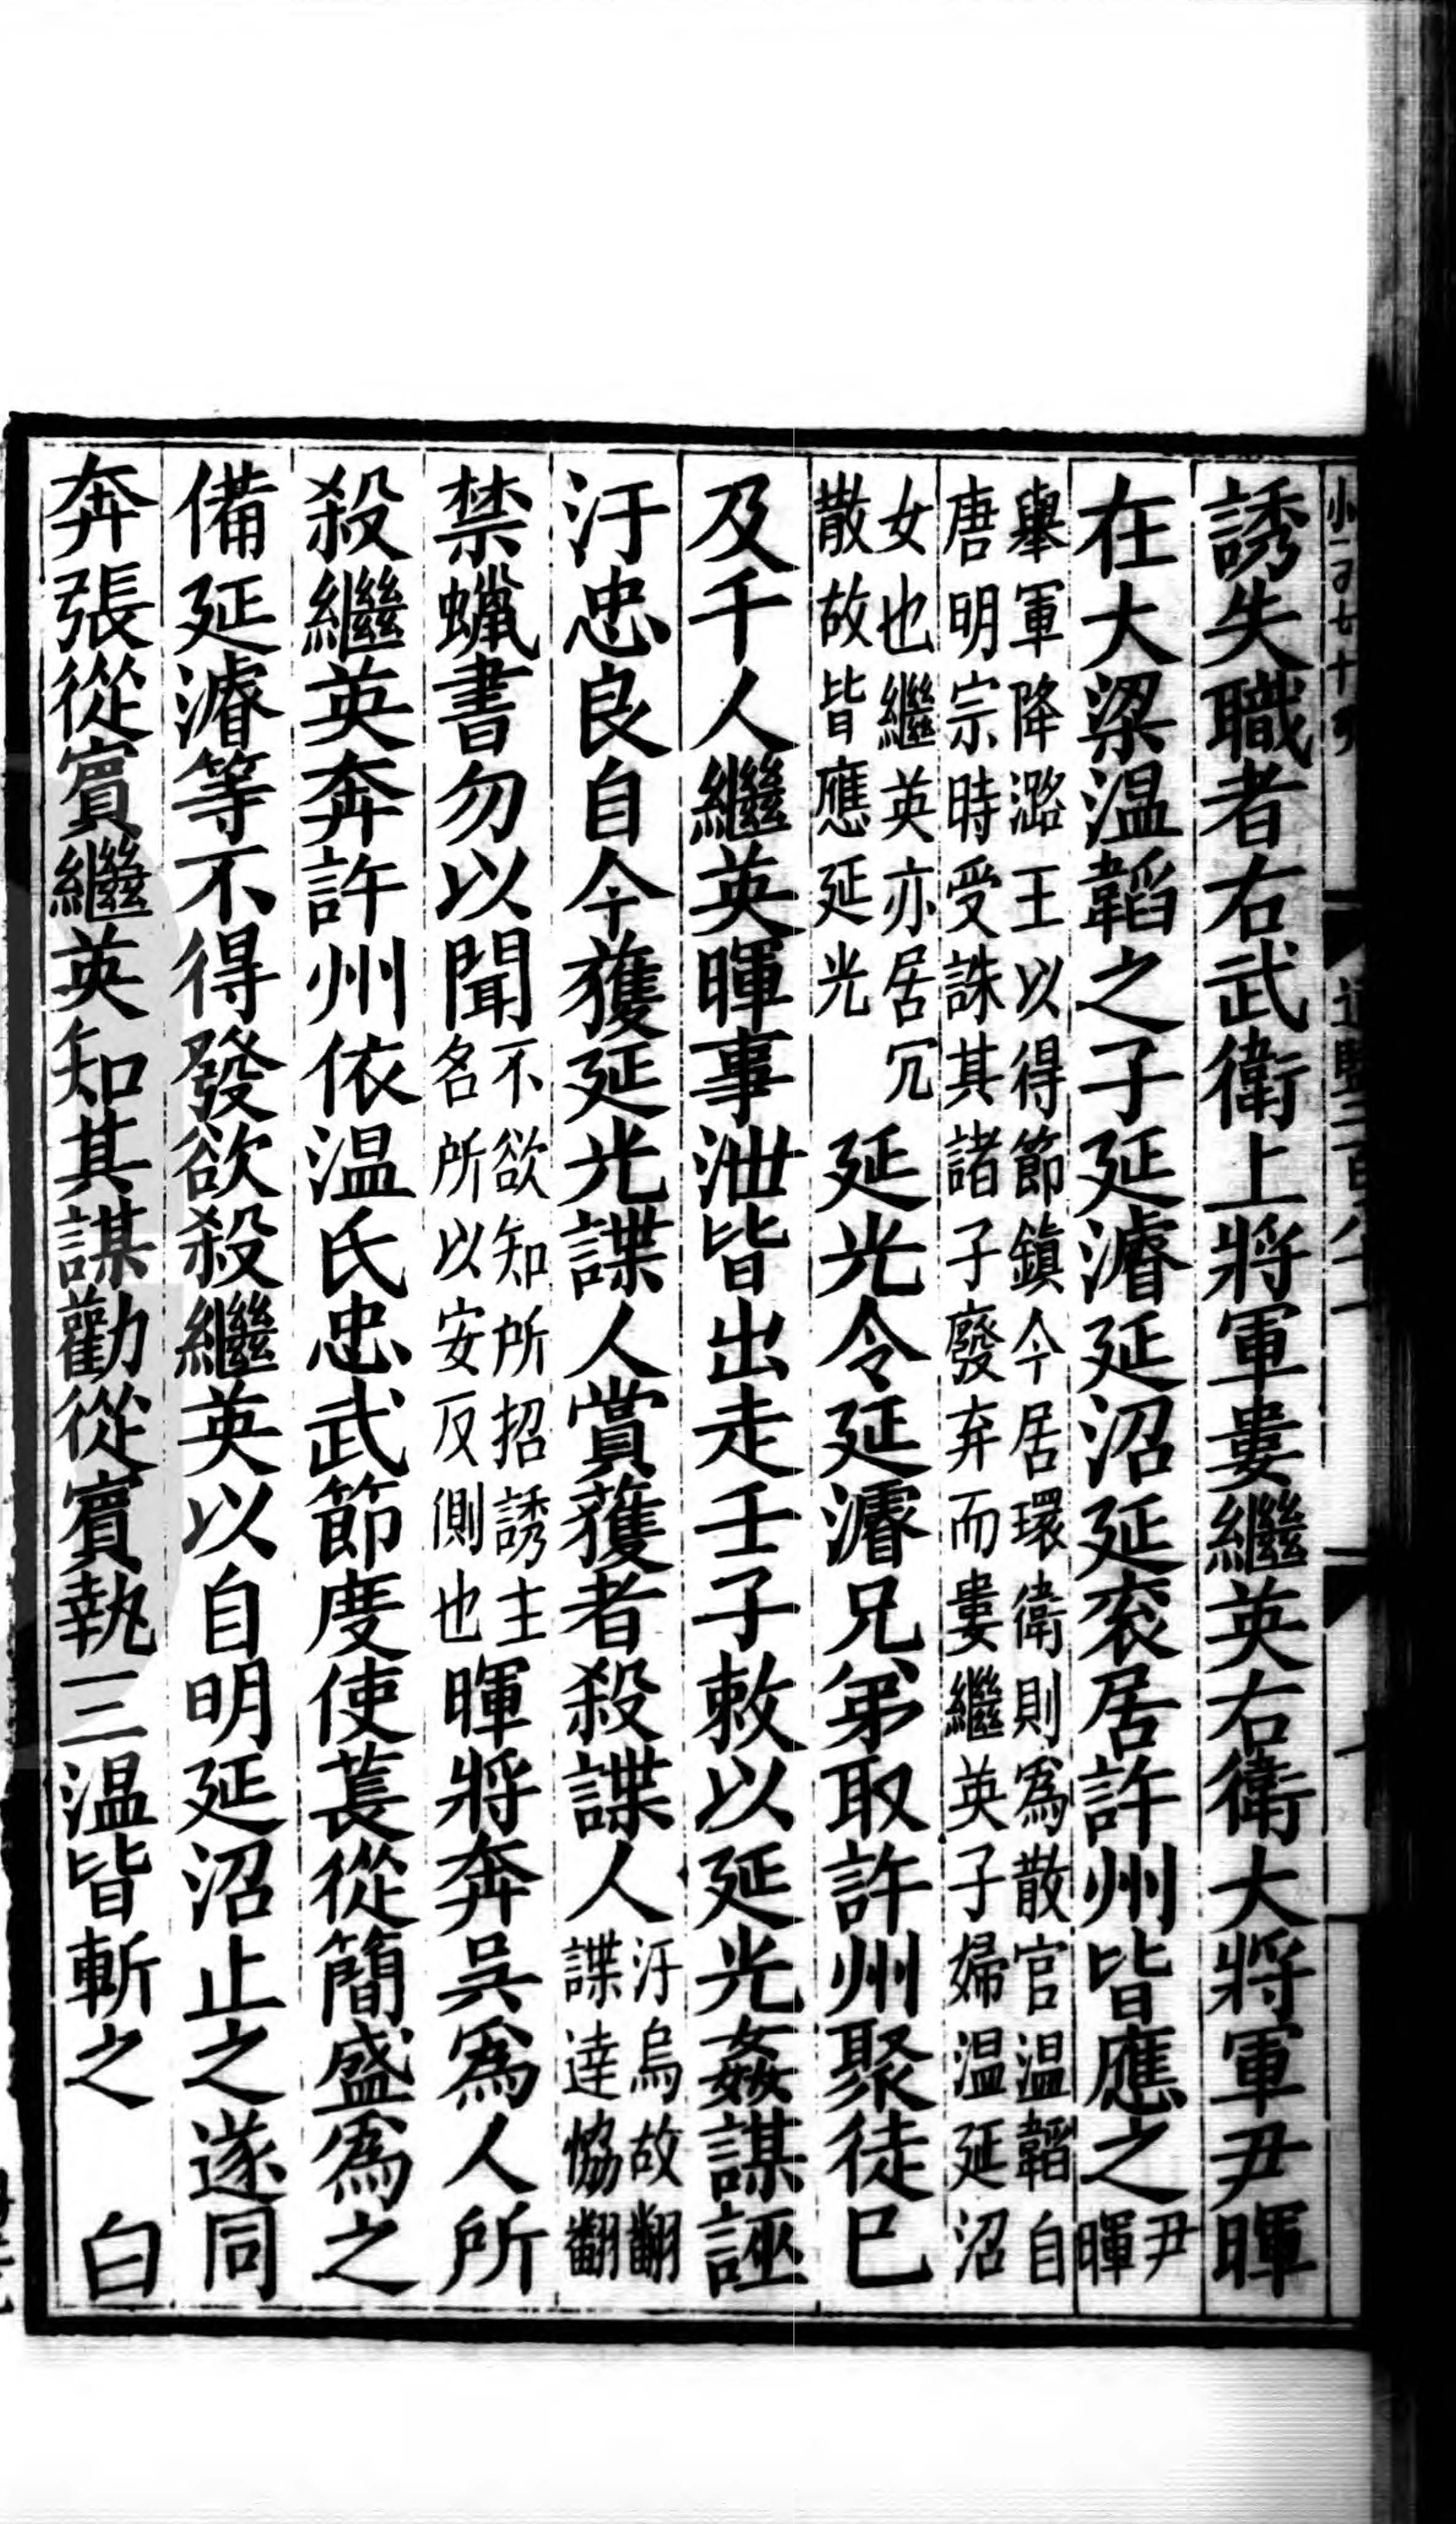 誘失職者右武衛上將軍婁繼英右衛大將軍尹暉
在大梁温韜之子延濬延沼延衮居許州皆應之尹暉
舉軍降潞王以得節鎮今居環衛則為散官温韜自
唐明宗時受誅其諸子廢弃而婁繼英子婦温延沼
女也繼英亦居冗
散故皆應延光
延光令延濬兄弟取許州聚徒巳
及千人繼英暉事泄皆出走壬子敕以延光姦謀誣
汙忠良自今獲延光諜人賞獲者殺諜人汙烏故翻
諜達恊翻
禁蠟書勿以聞不欲知所招誘主
名所以安反側也暉將奔吳為人所
殺繼英奔許州依温氏忠武節度使萇從簡盛為之
備延濬等不得發欲殺繼英以自明延沼止之遂同
奔張從賓繼英知其謀勸從賓執三温皆斬之　白